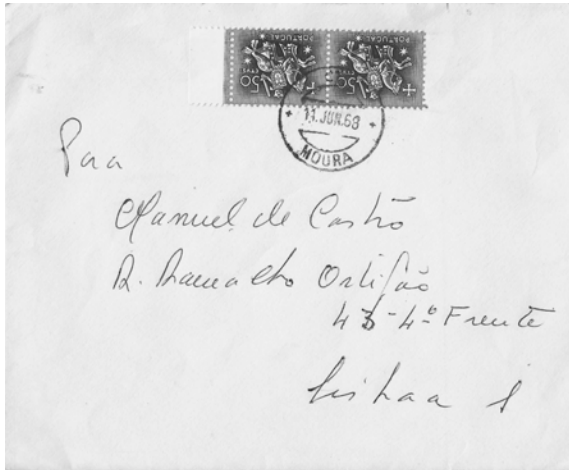 PORTUGAL PORTUGAL
CTVS 50
11.JUN.68
MOURA
Para
Manuel de Castro
R. Ramalho Ortigão
43-4º Frente
Lisboa 1